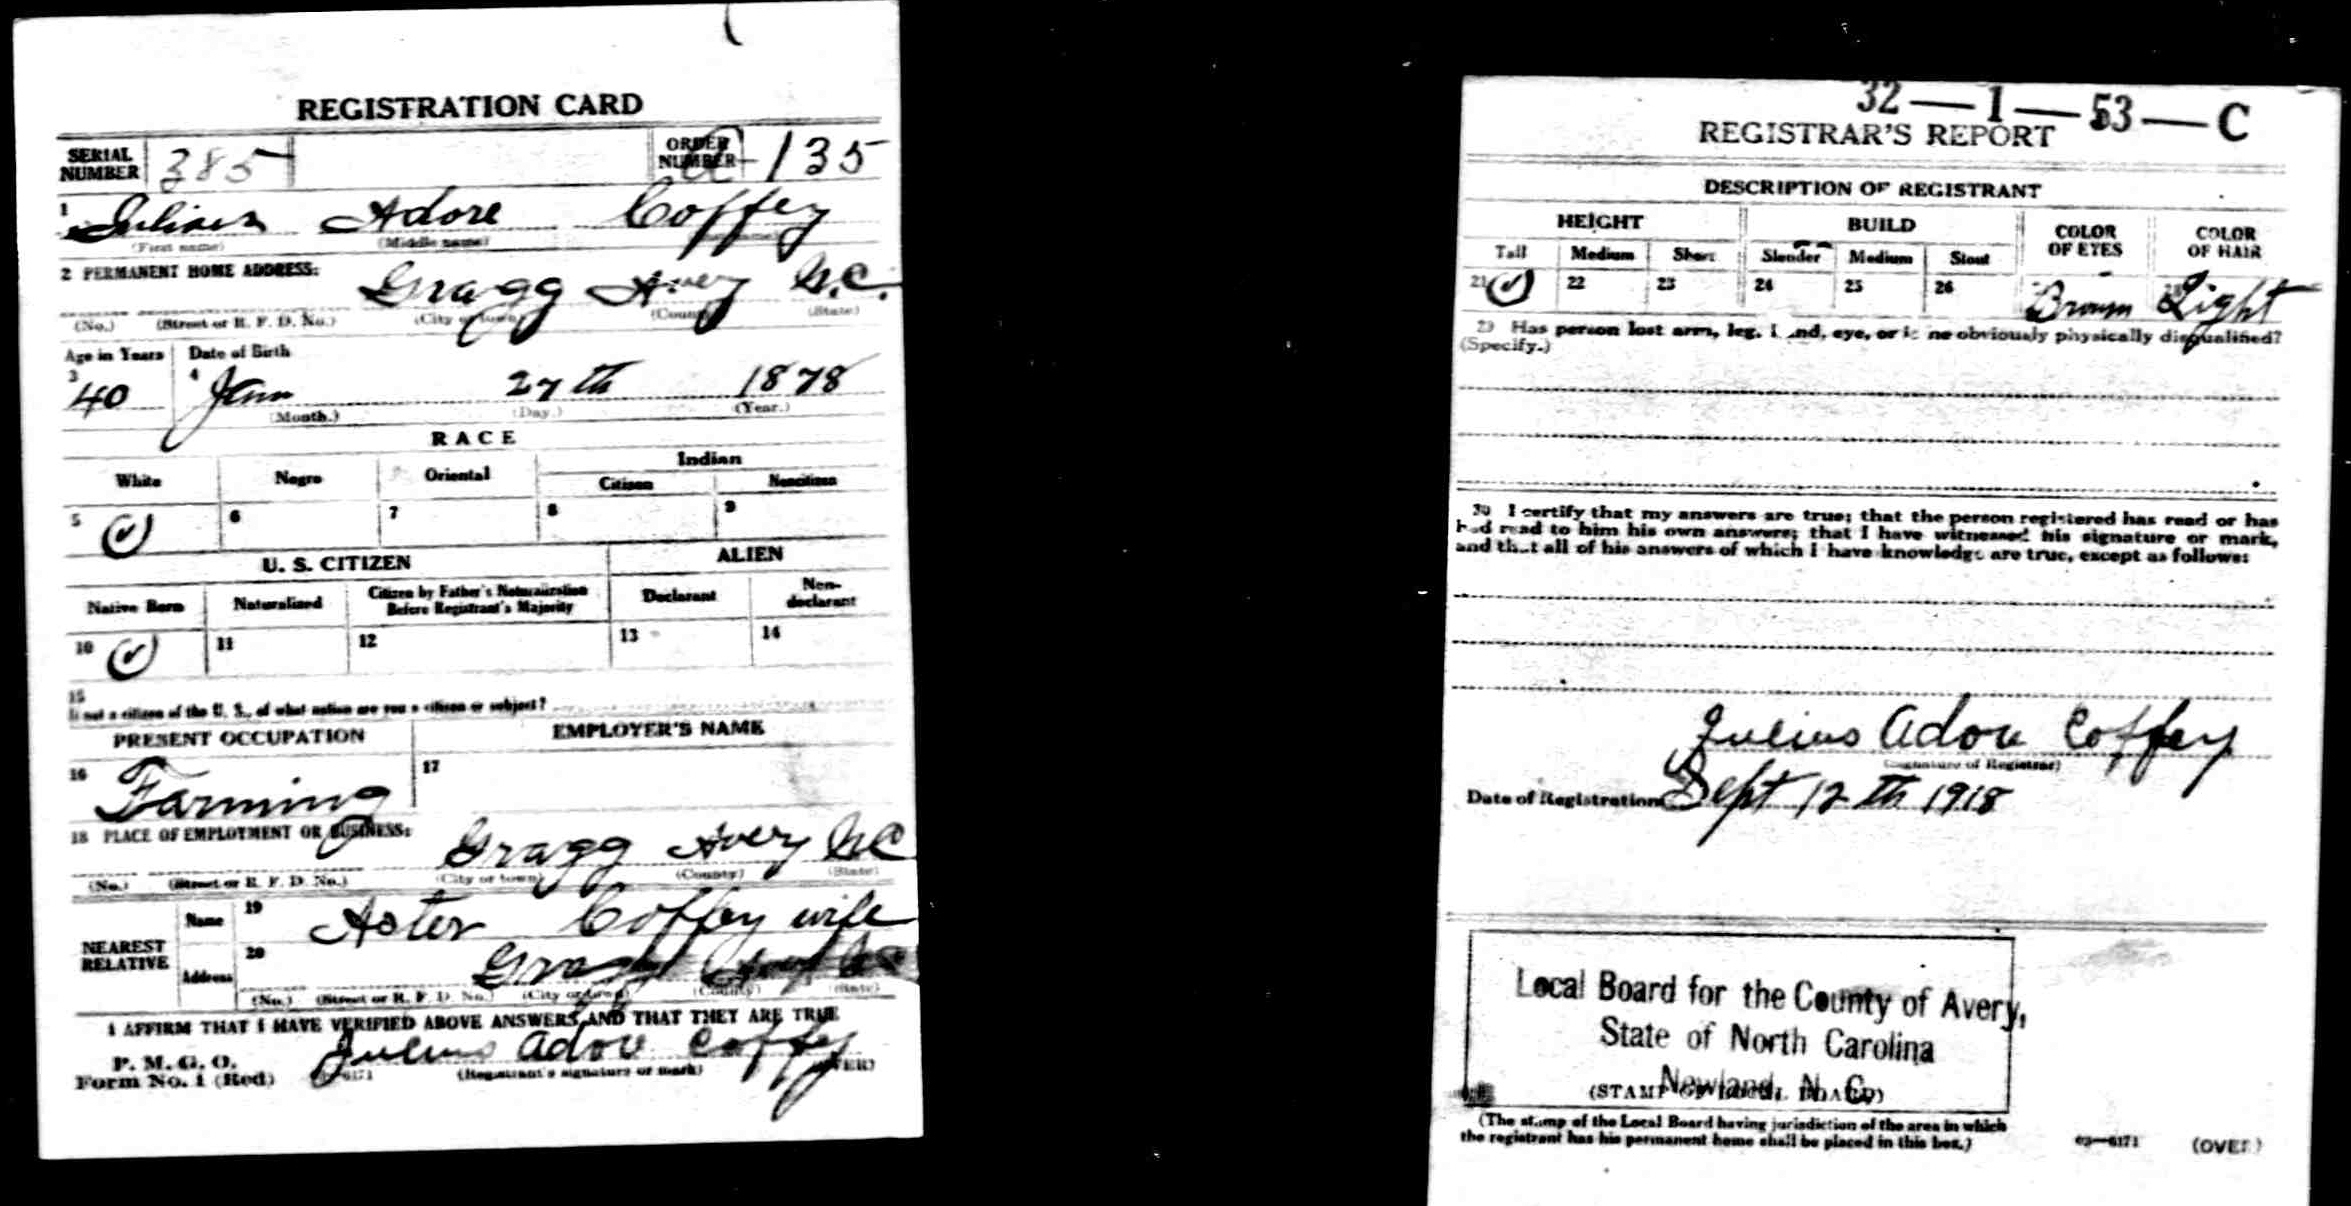 REGISTRATION CARD
SERIAL NUMBER 385 ORDER NUMBER A 135
1 Julius Adore Coffey
(First name) (Middle name)
2 PERMANENT HOME ADDRESS:
Gragg Avery N.C.
(No.) (Street or R. F. D. No.) (City or town) (County) (State)
Age in Years Date of Birth
3 40 4 Jan 27th 1878
(Month.) (Day.) (Year.)
RACE
White Negro Oriental Indian
Citizen Noncitizen
5 ✓ 6 7 8 9
U. S. CITIZEN ALIEN
Native Born Naturalized Citizen by Father's Naturalization Before Registrant's Majority Declarant Non-declarant
10 ✓ 11 12 13 14
15
If not a citizen of the U. S., of what nation are you a citizen or subject?
PRESENT OCCUPATION EMPLOYER'S NAME
16 Farming 17
18 PLACE OF EMPLOYMENT OR BUSINESS:
Gragg Avery N C
(No.) (Street or R. F. D. No.) (City or town) (County) (State)
NEAREST RELATIVE Name 19 Aster Coffey wife
Address 20 Gragg Avery N C
(No.) (Street or R. F. D. No.) (City or town) (County) (State)
I AFFIRM THAT I HAVE VERIFIED ABOVE ANSWERS AND THAT THEY ARE TRUE
P. M. G. O.
Form No. 1 (Red) Julius Adore Coffey
(Registrant's signature or mark) (OVER)
32—1—53—C
REGISTRAR'S REPORT
DESCRIPTION OF REGISTRANT
HEIGHT BUILD COLOR OF EYES COLOR OF HAIR
Tall Medium Short Slender Medium Stout
21 ✓ 22 23 24 25 26 Brown Light
29 Has person lost arm, leg, hand, eye, or is he obviously physically disqualified?
(Specify.)
30 I certify that my answers are true; that the person registered has read or has
had read to him his own answers; that I have witnessed his signature or mark,
and that all of his answers of which I have knowledge are true, except as follows:
Julius Adore Coffey
(Signature of Registrar)
Date of Registration Sept 12th 1918
Local Board for the County of Avery,
State of North Carolina
Newland, N. C.
(STAMP OF LOCAL BOARD)
(The stamp of the Local Board having jurisdiction of the area in which
the registrant has his permanent home shall be placed in this box.)
03—6171 (OVER)